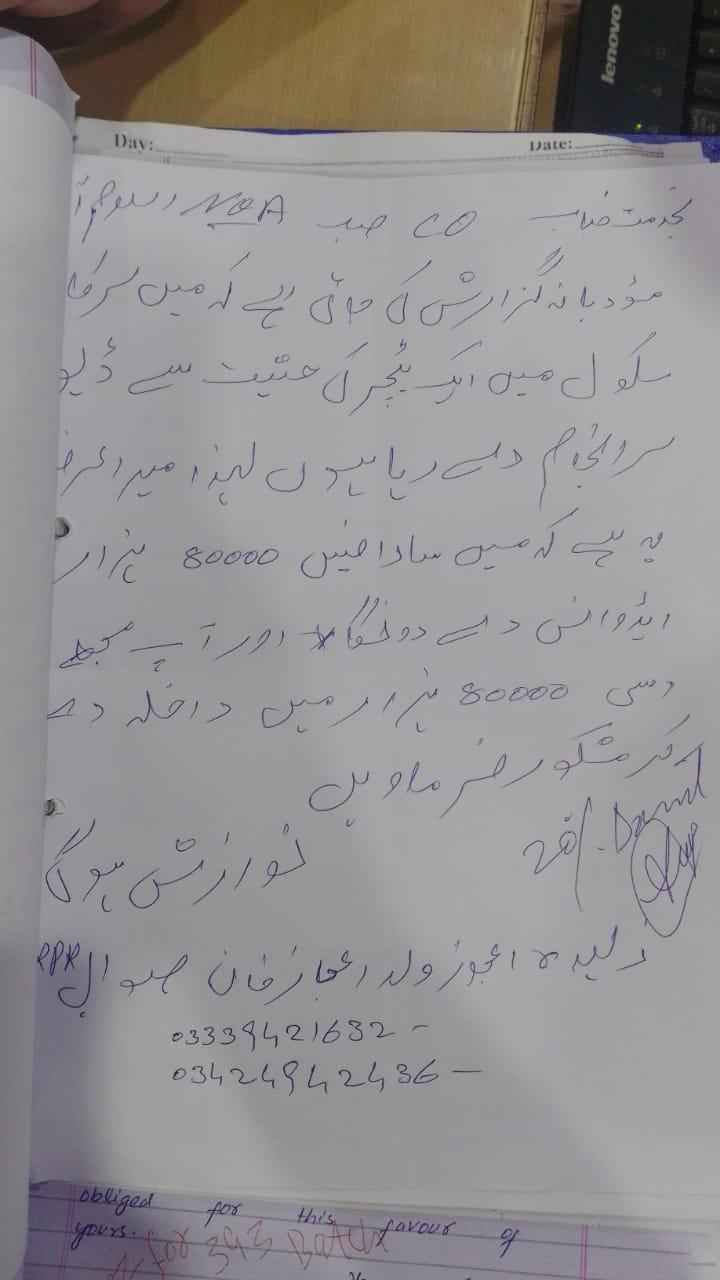 lenovo
Day: Date:
بخدمت جناب CO صب NOA اسلام آ
مؤدبانہ گزارش کی جاتی ہے کہ میں سرکا
سکول میں ایک ٹیچر کی حثیت سے ڈیو
سرانجام دے رہا ہوں لہذا میرا عرض
یہ ہے کہ میں سارا فیس 80000 ہزار
ایڈوانس دے دونگا اور آپ مجھے
اسی 80000 ہزار میں داخلہ دے
کر مشکور فرماویں
نوازش ہوگی
ولد اعجاز خان صوابی
03339421632 -
03424942436 -
obliged for this favour of
yours.
for 393 Batch